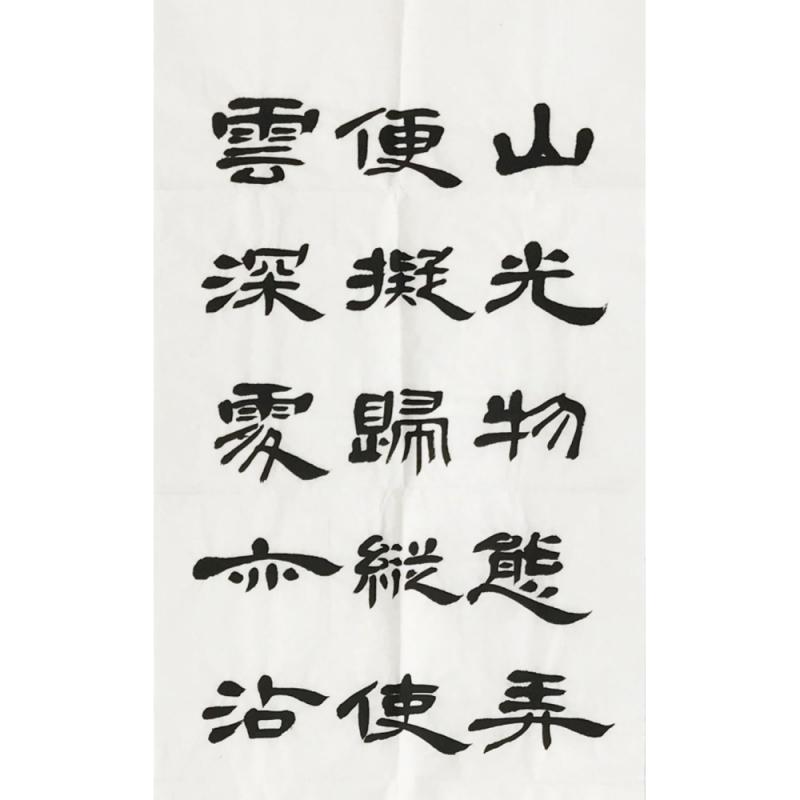 山光物態弄
便擬歸縱使
雲深處亦沾